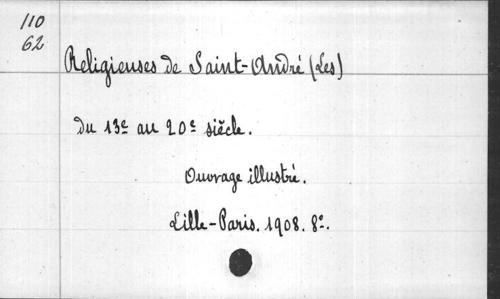 110
62
Religieuses de Saint-André (Les)
du 13e au 20e siècle.
Ouvrage illustré.
Lille-Paris. 1908. 8°.